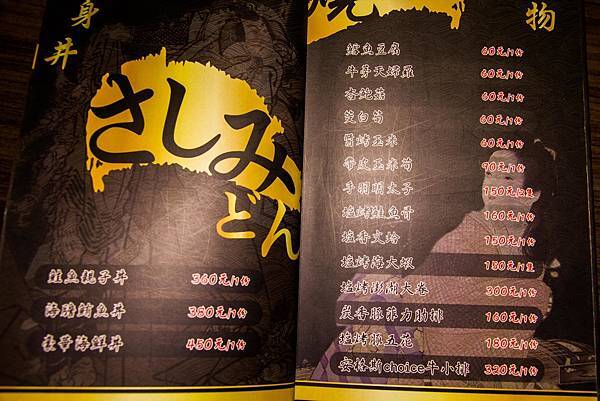 身
丼
さしみ
どん
鮭魚親子丼 360元/1份
海膽鮪魚丼 380元/1份
豪華海鮮丼 450元/1份
燒
物
鱈魚豆腐 60元/1份
牛蒡天婦羅 60元/1份
杏鮑菇 60元/1份
茭白筍 60元/1份
醬烤玉米 60元/1份
帶皮玉米筍 90元/1份
手羽明太子 150元/2隻
塩烤鮭魚骨 160元/1份
塩香文蛤 150元/1份
塩烤海大蝦 150元/1隻
塩烤澎湖大卷 300元/1份
炭香豚菲力肋排 160元/1份
塩烤豚五花 180元/1份
安格斯choice牛小排 320元/1份